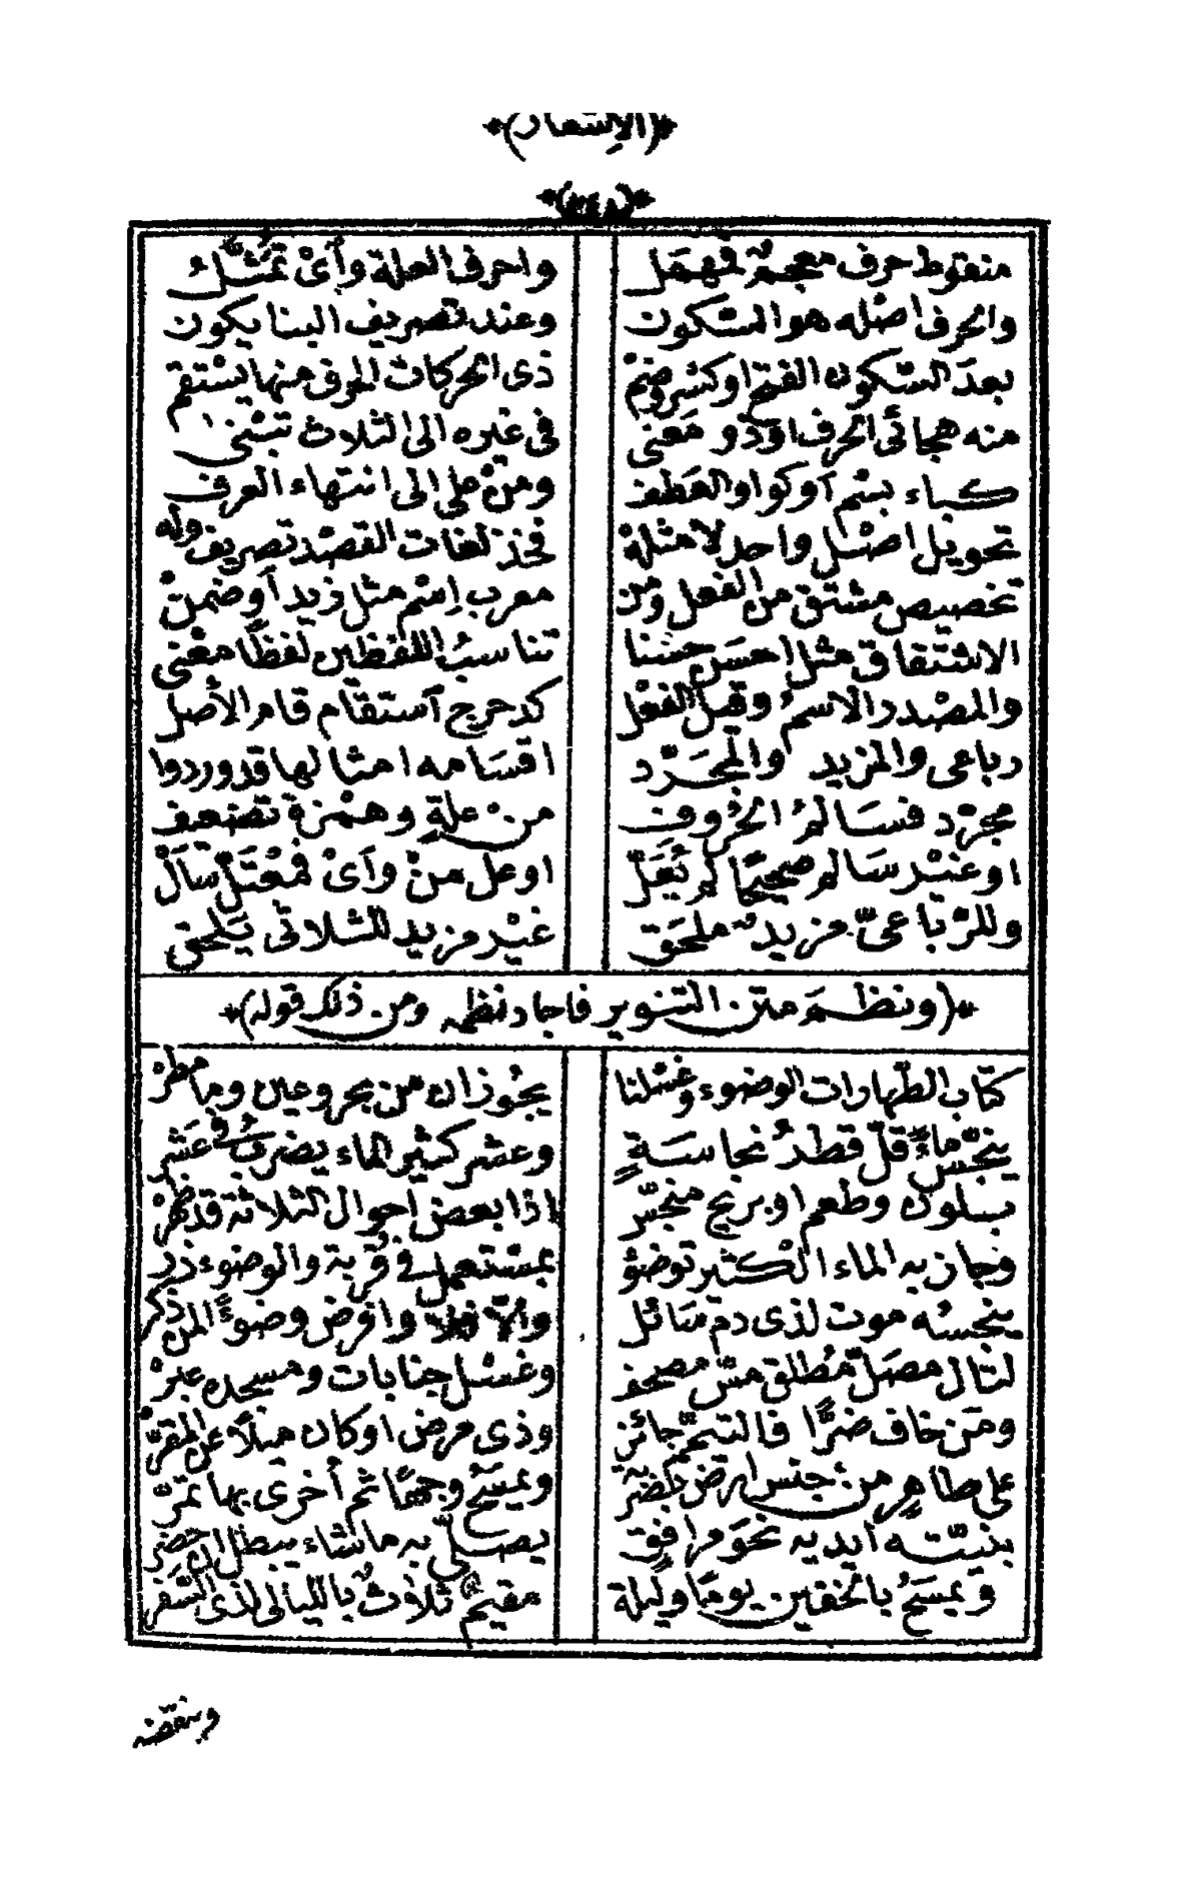 (الاشعار)
(٢٤٨)
منقوط حرف معجم فمهمل واحرف العلة وأى تمثل
والحرف اصله هو السكون وعند تصريف البنا يكون
بعد السكون الفتح او كسر وضم ذى الحركات الحرف منها يستقم
منه هجائى الحرف او ذو معنى فى غيره الى الثلاث تبنى
كباء بسم أو كواو العطف ومن على الى انتهاء العرف
تحويل اصل واحد لامثله فخذ لغات القصد تصريف وله
تخصيص مشتق من الفعل ومن معرب اسم مثل زيد أو ضمن
الاشتقاق مثل احسن حسنا تناسب اللفظين لفظا معنى
والمصدر الاسم وقيل الفعل كدحرج استقام قام الأصل
رباعى والمزيد والمجرد اقسامه امثالها قد وردوا
مجرد فسالم الحروف من علة وهمزة تضعيف
او غير سالم صحيحا لم يعل او عل من وأى فمعتل سأل
وللرباعى مزيد ملحق غير مزيد للثلاثى يلحق
(ونظم متن التنوير فاجاد نظمه ومن ذلك قوله)
كتاب الطهارات الوضوء وغسلنا يجوز ذان من بحر وعين وما مطر
ينجس ماء قل قطر نجاسة وعشر كثير الماء يضرب فى عشر
بلون وطعم او بريح منجس اذا بعض احوال الثلاثة قد ظهر
وجاز به الماء الكثير توضؤ بمستعمل فى قربة والوضوء ذر
ينجسه موت لذى دم سائل والا فلا وافرض وضوءا لمن ذكر
لتال مصل مطلق مس مصحف وغسل جنابات ومسجده عبر
ومن خاف ضرا فالتيمم جائز وذى مرض او كان ميلا عن المقر
على طاهر من جنس ارض بضربة ويمسح وجها ثم أخرى بها تمر
بنيته ايديه نحو مرافق يصلى به ما شاء يبطل ان حضر
ويمسح بالخفين يوما وليلة مقيم ثلاث بالليالى لذى السفر
وينقضه